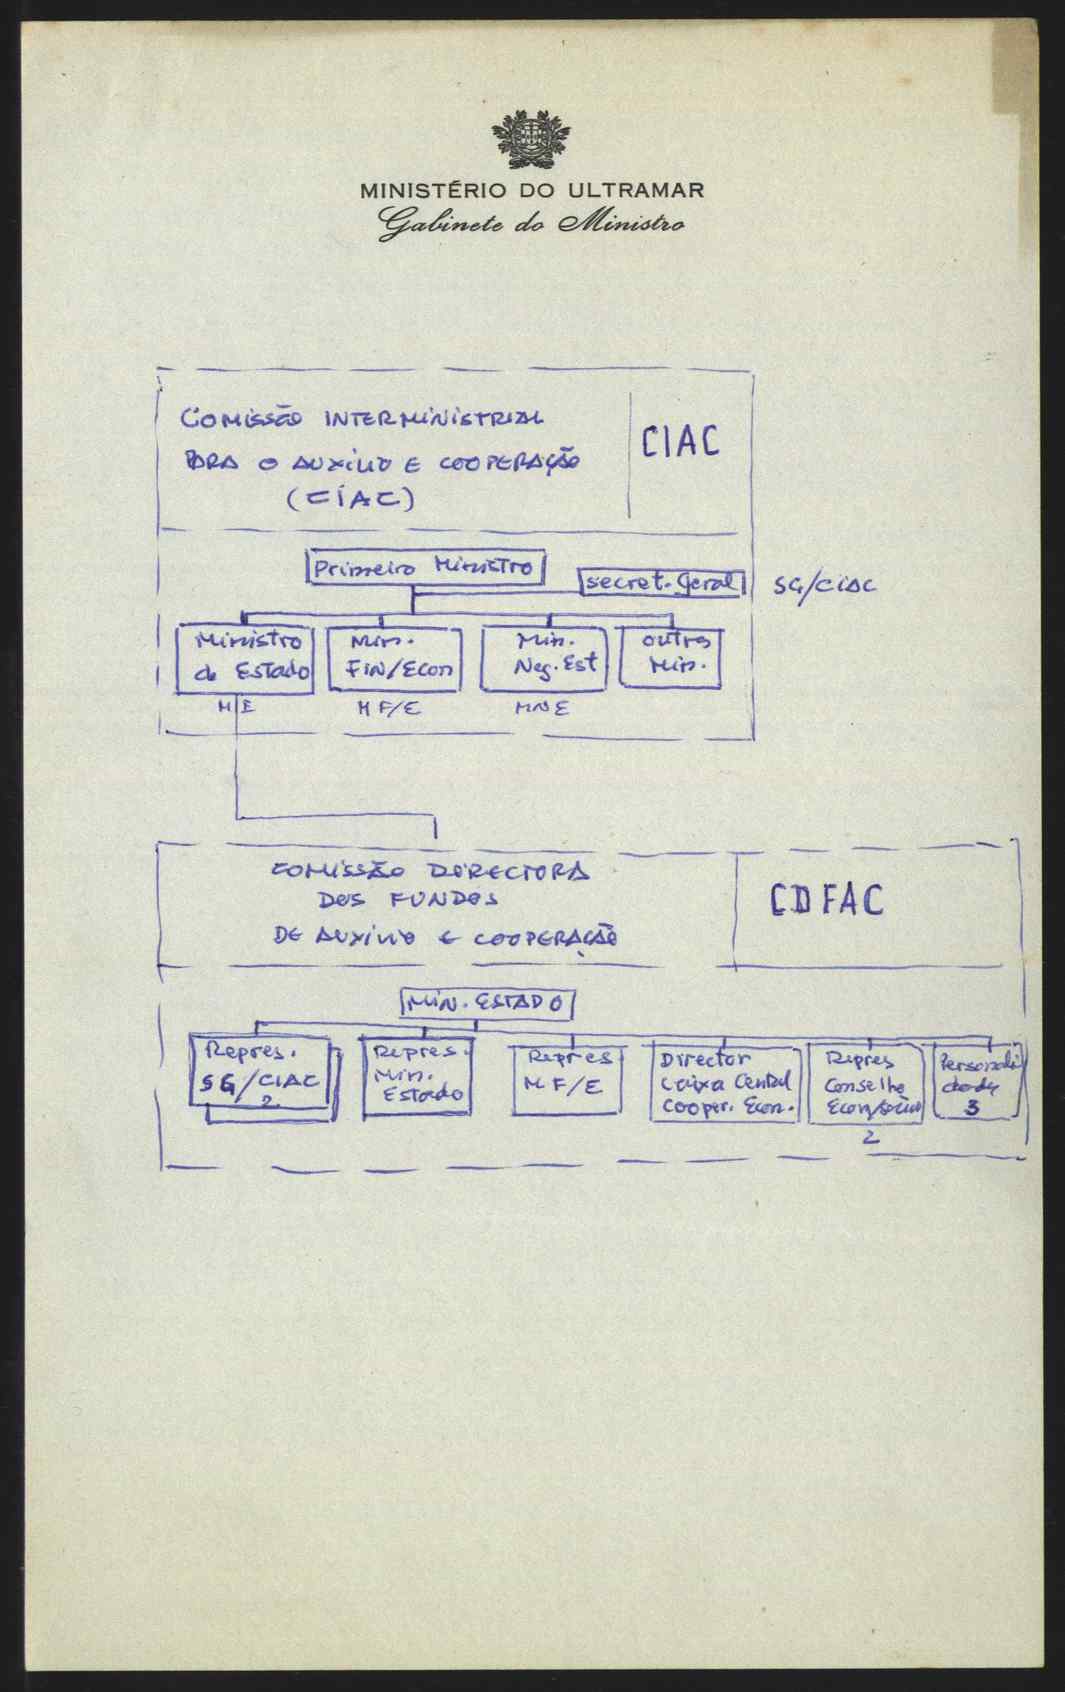 MINISTÉRIO DO ULTRAMAR
Gabinete do Ministro
COMISSÃO INTERMINISTRIAL
PARA O AUXILIO E COOPERAÇÃO
(CIAC)
CIAC
Primeiro Ministro
secret. Geral
SG/CIAC
Ministro
de Estado
Min.
FIN/Econ
Min.
Neg. Est
outros
Min.
ME
MF/E
MNE
COMISSÃO DIRECTORA
DOS FUNDOS
DE AUXILIO E COOPERAÇÃO
CDFAC
MIN. ESTADO
Repres.
SG/CIAC
2
Repres.
Min.
Estado
Repres
MF/E
Director
Caixa Central
Cooper. Econ.
Repres
Conselho
Econ/social
2
Personali
dades
3